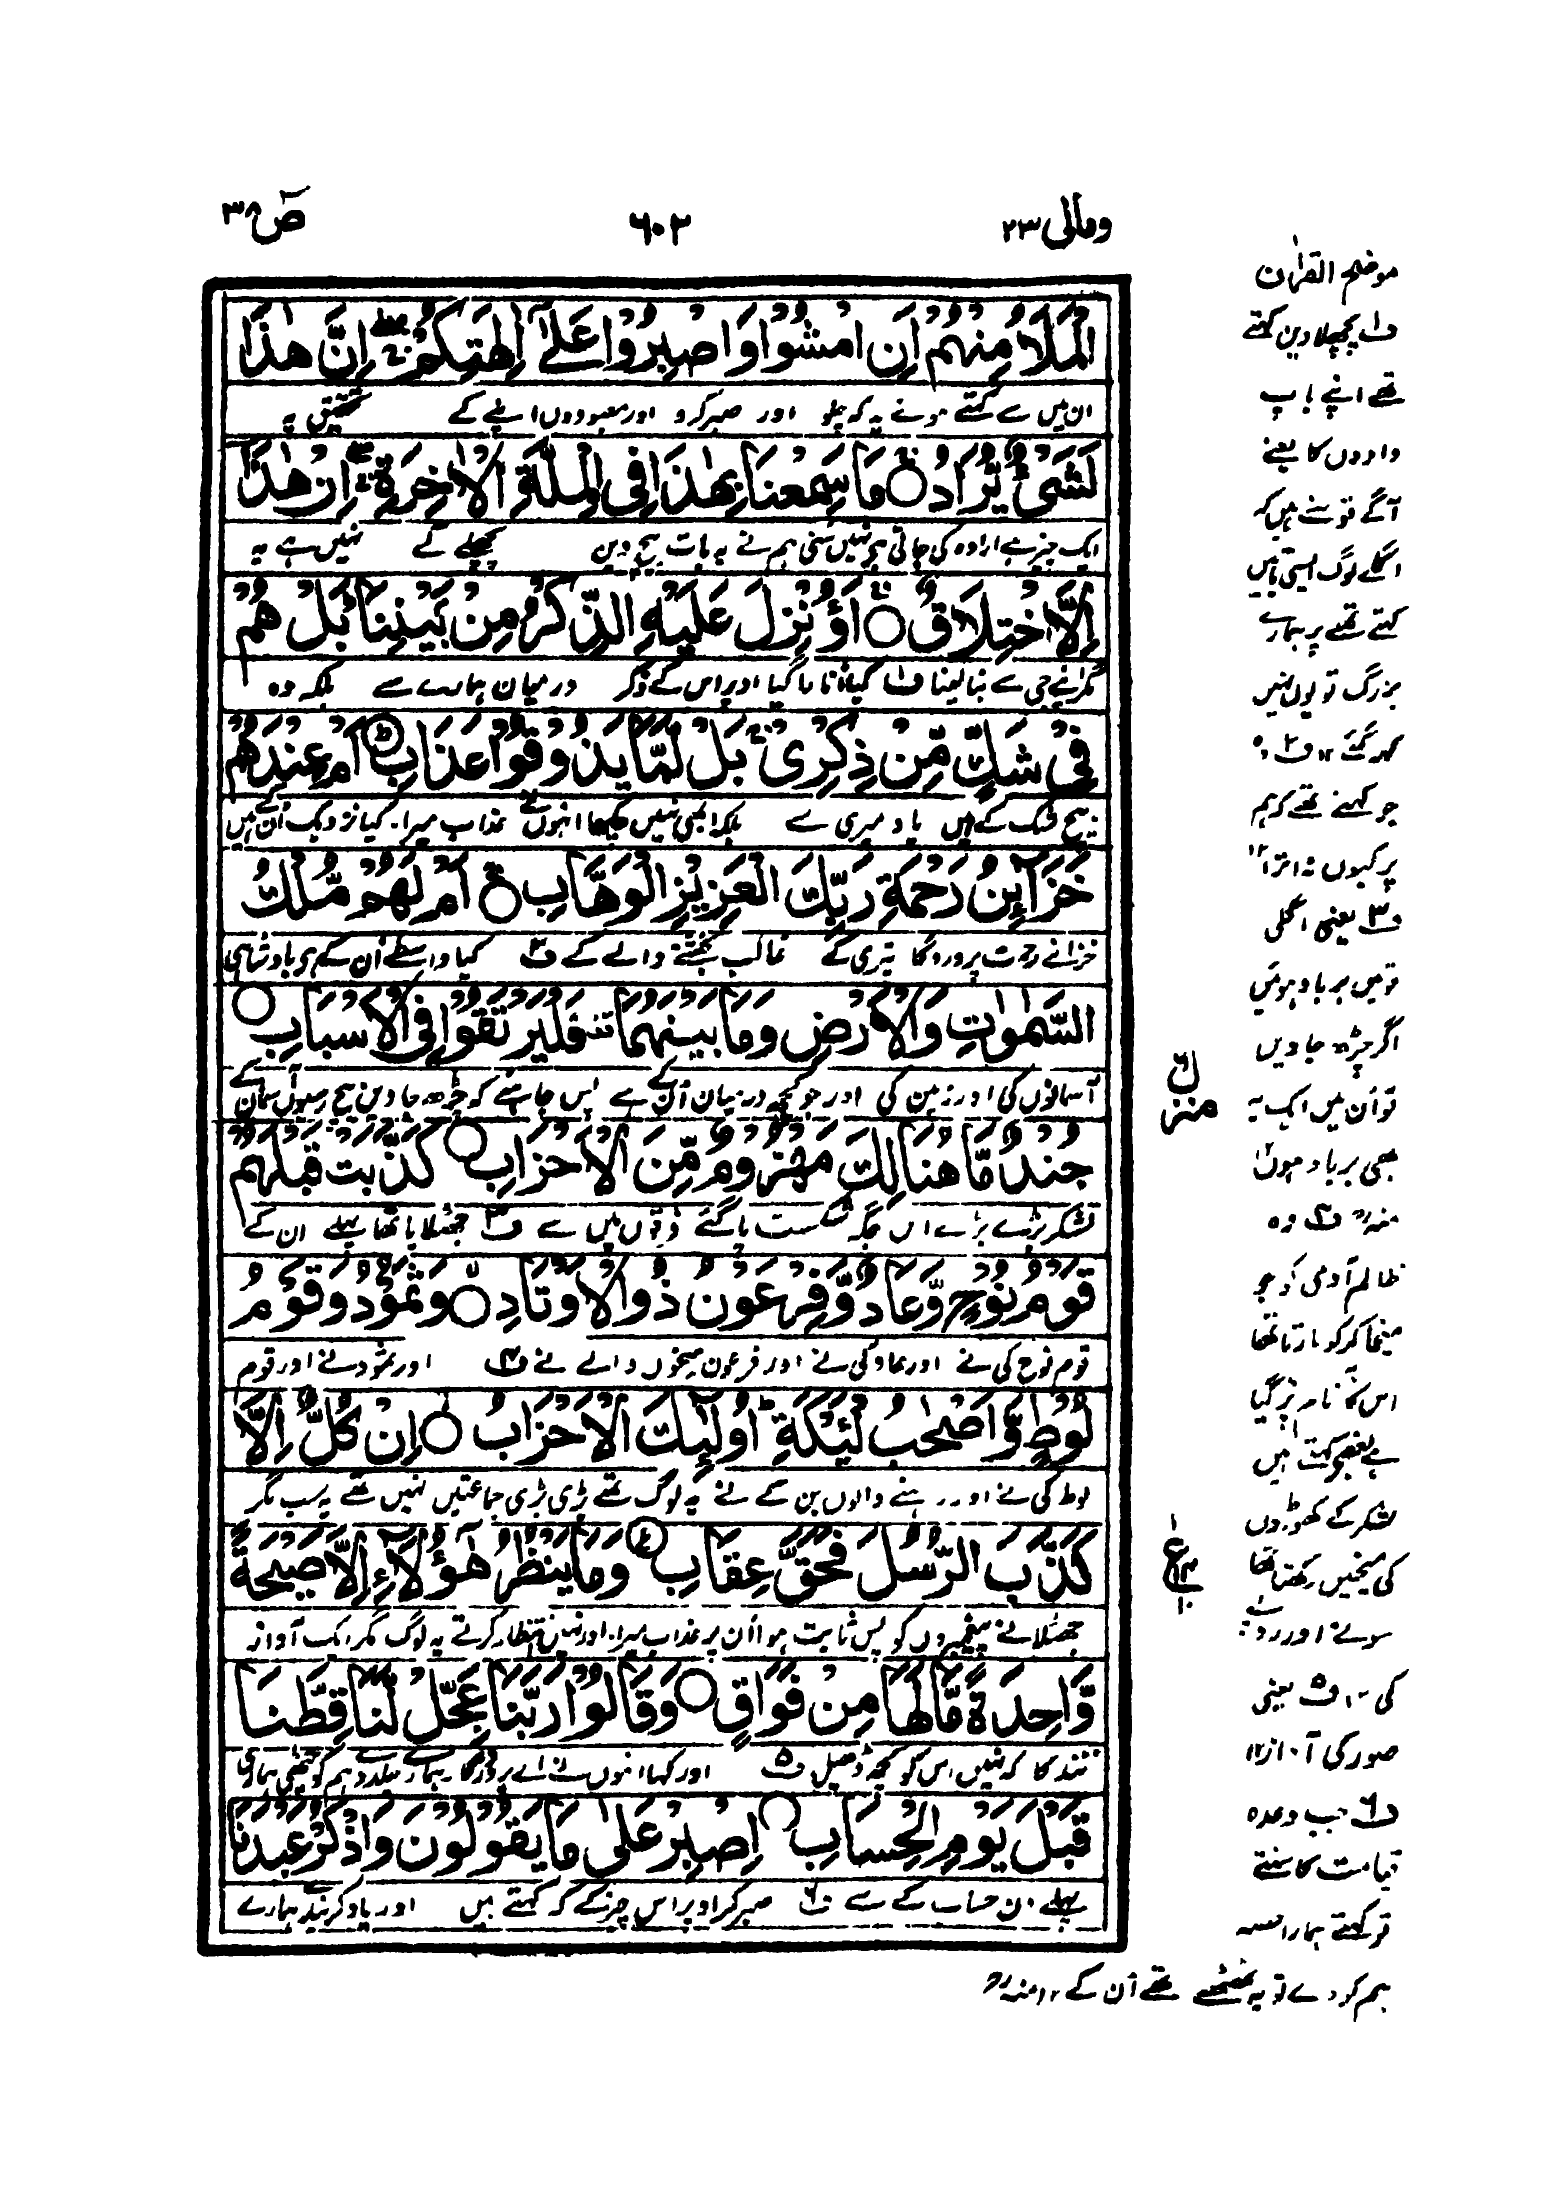 ومالی ۲۳
۶۰۲
ص ۳۸
الْمَلَاُ مِنْهُمْ اَنِ امْشُوْا وَاصْبِرُوْا عَلٰٓى اٰلِهَتِكُمْ ۚ اِنَّ هٰذَا
ان میں سے کہتے ہوئے یہ کہ چلو اور صبر کرو اوپر معبودوں اپنے کے تحقیق یہ
لَشَیْءٌ یُّرَادُ ○ مَا سَمِعْنَا بِهٰذَا فِی الْمِلَّةِ الْاٰخِرَةِ ۚ اِنْ هٰذَا
ایک چیز ہے ارادہ کی جاتی ہے نہیں سنی ہم نے یہ بات بیچ دین پچھلے کے نہیں ہے یہ
اِلَّا اخْتِلَاقٌ ○ ءَاُنْزِلَ عَلَیْهِ الذِّكْرُ مِنْۢ بَیْنِنَا ؕ بَلْ هُمْ
مگر اپنے جی سے بنا لینا ف۱ کیا اتارا گیا اوپر اس کے ذکر درمیان ہمارے سے بلکہ وہ
فِیْ شَكٍّ مِّنْ ذِكْرِیْ ۚ بَلْ لَّمَّا یَذُوْقُوْا عَذَابِ ○ اَمْ عِنْدَهُمْ
بیچ شک کے ہیں یاد میری سے بلکہ ابھی نہیں چکھا انہوں نے عذاب میرا۔ کیا نزدیک ان کے ہیں
خَزَآئِنُ رَحْمَةِ رَبِّكَ الْعَزِیْزِ الْوَهَّابِ ○ اَمْ لَهُمْ مُّلْكُ
خزانے رحمت پروردگار تیری کے غالب بخشنے والے کے ف۲ کیا واسطے ان کے ہے بادشاہی
السَّمٰوٰتِ وَالْاَرْضِ وَمَا بَیْنَهُمَا ۫ فَلْیَرْتَقُوْا فِی الْاَسْبَابِ ○
آسمانوں کی اور زمین کی اور جو کچھ درمیان ان کے ہے پس چاہئے کہ چڑھ جاویں بیچ رسیوں آسمان کے
جُنْدٌ مَّا هُنَالِكَ مَهْزُوْمٌ مِّنَ الْاَحْزَابِ ○ كَذَّبَتْ قَبْلَهُمْ
لشکر بڑے بڑے اس جگہ شکست پا گئے فرقوں میں سے ف۳ جھٹلایا تھا پہلے ان کے
قَوْمُ نُوْحٍ وَّعَادٌ وَّفِرْعَوْنُ ذُو الْاَوْتَادِ ○ وَثَمُوْدُ وَقَوْمُ
قوم نوح کی نے اور عاد کی نے اور فرعون میخوں والے نے ف۴ اور ثمود نے اور قوم
لُوْطٍ وَّاَصْحٰبُ لْـَٔیْكَةِ ؕ اُولٰٓئِكَ الْاَحْزَابُ ○ اِنْ كُلٌّ اِلَّا
لوط کی نے اور رہنے والوں بن کے نے یہ لوگ تھے بڑی بڑی جماعتیں نہیں تھے یہ سب مگر
كَذَّبَ الرُّسُلَ فَحَقَّ عِقَابِ ○ وَمَا یَنْظُرُ هٰٓؤُلَآءِ اِلَّا صَیْحَةً
جھٹلانے پیغمبروں کو پس ثابت ہوا ان پر عذاب میرا۔ اور نہیں انتظار کرتے یہ لوگ مگر ایک آواز
وَّاحِدَةً مَّا لَهَا مِنْ فَوَاقٍ ○ وَقَالُوْا رَبَّنَا عَجِّلْ لَّنَا قِطَّنَا
تند کا کہ نہیں اس کو کچھ ڈھیل ف۵ اور کہا انہوں نے اے پروردگار ہمارے جلد دے ہم کو چٹھی ہماری
قَبْلَ یَوْمِ الْحِسَابِ ○ اِصْبِرْ عَلٰى مَا یَقُوْلُوْنَ وَاذْكُرْ عَبْدَنَا
پہلے دن حساب کے سے ف۶ صبر کر اوپر اس چیز کے کہ کہتے ہیں اور یاد کر بندے ہمارے
موضح القرآن
ف۱ پچھلا دین کہتے
تھے اپنے باپ
دادوں کا یعنے
آگے تو سنے ہیں کہ
اگلے لوگ ایسی باتیں
کہتے تھے پر ہمارے
بزرگ تو یوں نہیں
کہہ گئے ۱۲ ف۲ وہ
جو کہتے تھے کہ ہم
پر کیوں نہ اترا ۱۲
ف۳ یعنی اگلی
قومیں برباد ہوئیں
اگر چڑھ جاویں
تو ان میں ایک یہ
بھی برباد ہوں
منہ ف۴ وہ
ظالم آدمی کو جو
میخا کر کر مارتا تھا
اس کا نام پڑ گیا
ہے بعضے کہتے ہیں
لشکر کے گھوڑوں
کی میخیں رکھتا تھا
سونے اور روپے
کی ۱۲ ف۵ یعنی
صور کی آواز ۱۲
ف۶ جب وعدہ
قیامت کا سنتے
تو کہتے ہمارا حصہ
ہم کو دے تو یہ ٹھٹھے تھے ان کے ۱۲ منہ
منزل ۶
ع